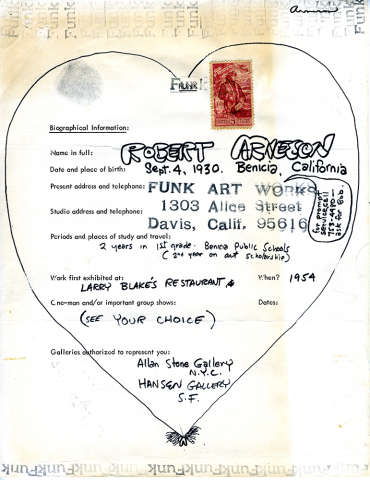 Funk Funk Funk Funk Funk Funk
Funk
Biographical Information:
Name in full: ROBERT ARNESON
Date and place of birth: Sept. 4, 1930. Benicia, California
Present address and telephone: FUNK ART WORKS
Studio address and telephone: 1303 Alice Street
Davis, Calif. 95616
for prompt
service call
753-4480
ask for Bob.
Periods and places of study and travel:
2 years in 1st grade - Benicia Public Schools
(2nd year on art scholarship)
Work first exhibited at: LARRY BLAKE'S RESTAURANT When? 1954
One-man and/or important group shows: Dates:
(SEE YOUR CHOICE)
Galleries authorized to represent you:
Allan Stone Gallery
N.Y.C.
HANSEN GALLERY
S.F.
Funk Funk Funk Funk Funk Funk